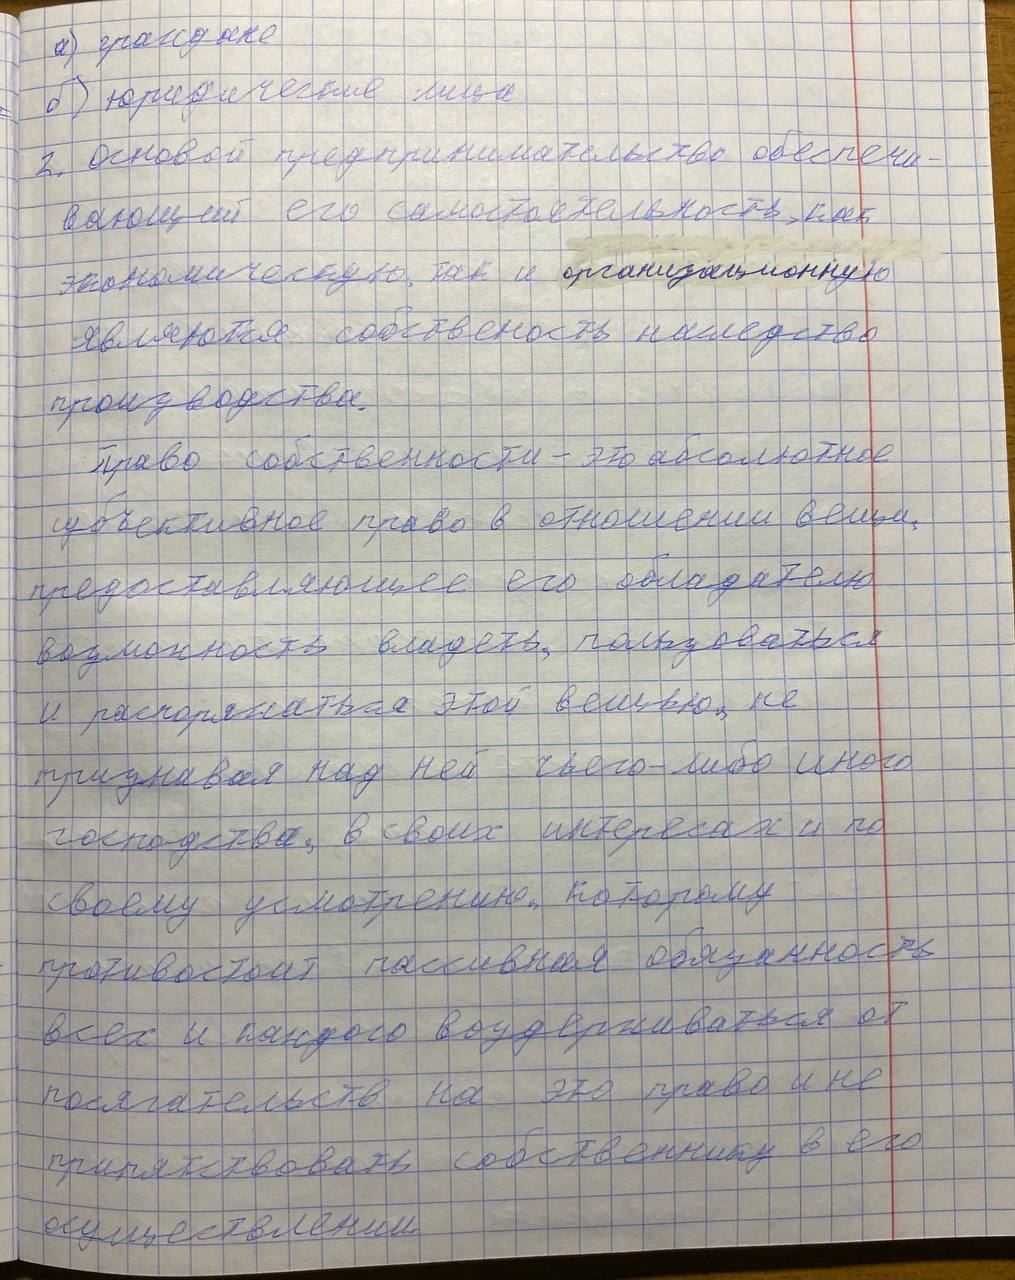 а) граждане
б) юридические лица
2. Основой предпринимательство обеспечи-
вающей его самостоятельность, как
экономическую, так и организационную
являются собственость наследство
производства.
Право собственности - это абсолютное
субъективное право в отношении вещи,
предоставляющее его обладателю
возможность владеть, пользоваться
и распоряжаться этой вещью, не
признавая над ней чьего-либо иного
господства, в своих интересах и по
своему усмотрению, которому
противостоит пассивная обязанность
всех и каждого воздерживаться от
посягательств на это право и не
припятствовать собственнику в его
осуществлении